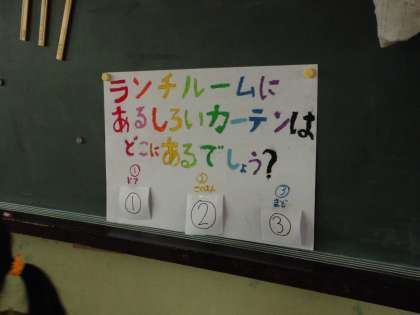 ランチルームに
あるしろいカーテンは
どこにあるでしょう?
① ② ③
ドア こくばん まど
① ② ③